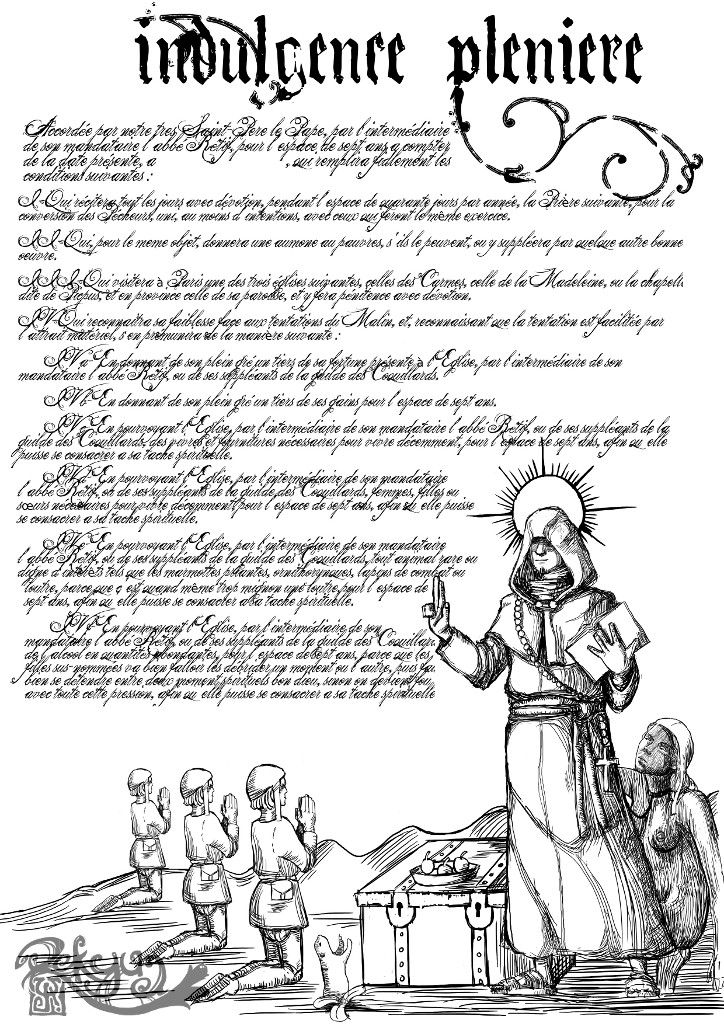 indulgence pleniere
Accordée par notre tres Saint-Père le Pape, par l'intermédiaire
de son mandataire l'abbé Rétif, pour l'espace de sept ans a compter
de la date présente, a , qui remplira fidlement les
conditions suivantes :
I-Qui récitera tout les jours avec dévotion, pendant l'espace de quarante jours par année, la Prière suivante, pour la
conversion des Pécheurs, uni, au moins d'intentions, avec ceux qui feront le même exercice.
II-Qui, pour le meme objet, donnera une aumone au pauvres, s'ils le peuvent, ou y suppléera par quelque autre bonne
oeuvre.
III-Qui visitera à Paris une des trois églises suivantes, celles des Carmes, celle de la Madeleine, ou la chapelle
dite de Picpus, et en province celle de sa paroisse, et y fera penitence avec dévotion.
IV-Qui reconnaitra sa faiblesse face aux tentations du Malin, et, reconnaisant que la tentation est facilitée par
l'attrait matériel, s'en prémunira de la manière suivante :
IVa-En donnant de son plein gré un tiers de sa fortune présente à l'Eglise, par l'intermédiaire de son
mandataire l'abbé Rétif, ou de ses suppléants de la guilde des Coquillards.
IVb-En donnant de son plein gré un tiers de ses gains pour l'espace de sept ans.
IVc-En pourvoyant l'Eglise, par l'intermédiaire de son mandataire l'abbé Rétif, ou de ses suppléants de la
guilde des Coquillards, des vivres et fournitures nécessaires pour vivre décemment, pour l'espace de sept ans, afin qu'elle
puisse se consacrer a sa tache spirituelle.
IVd-En pourvoyant l'Eglise, par l'intermédiaire de son mandataire
l'abbé Rétif, ou de ses suppléants de la guilde des Coquillards, femmes, filles ou
sœurs nécessaires pour vivre décemment, pour l'espace de sept ans, afin qu'elle puisse
se consacrer a sa tache spirituelle.
IVe-En pourvoyant l'Eglise, par l'intermédiaire de son mandataire
l'abbé Rétif, ou de ses suppléants de la guilde des Coquillards, tout animal rare ou
digne d'intérêts tels que les marmottes pétantes, ornithorynques, lapins de combat ou
loutre, parce que ç'est quand même trop mignon une loutre, pour l'espace de
sept ans, afin qu'elle puisse se consacrer a sa tache spirituelle.
IVf-En pourvoyant l'Eglise, par l'intermédiaire de son
mandataire l'abbé Rétif, ou de ses suppléants de la guilde des Coquillards
de l'alcool en quantités abondantes, pour l'espace de sept ans, parce que les
filles sus-nommées va bien falloir les débrider un moment ou l'autre, puis faut
bien se detendre entre deux moment spirituels bon dieu, sinon on devient fou
avec toute cette pression, afin qu'elle puisse se consacrer a sa tache spirituelle